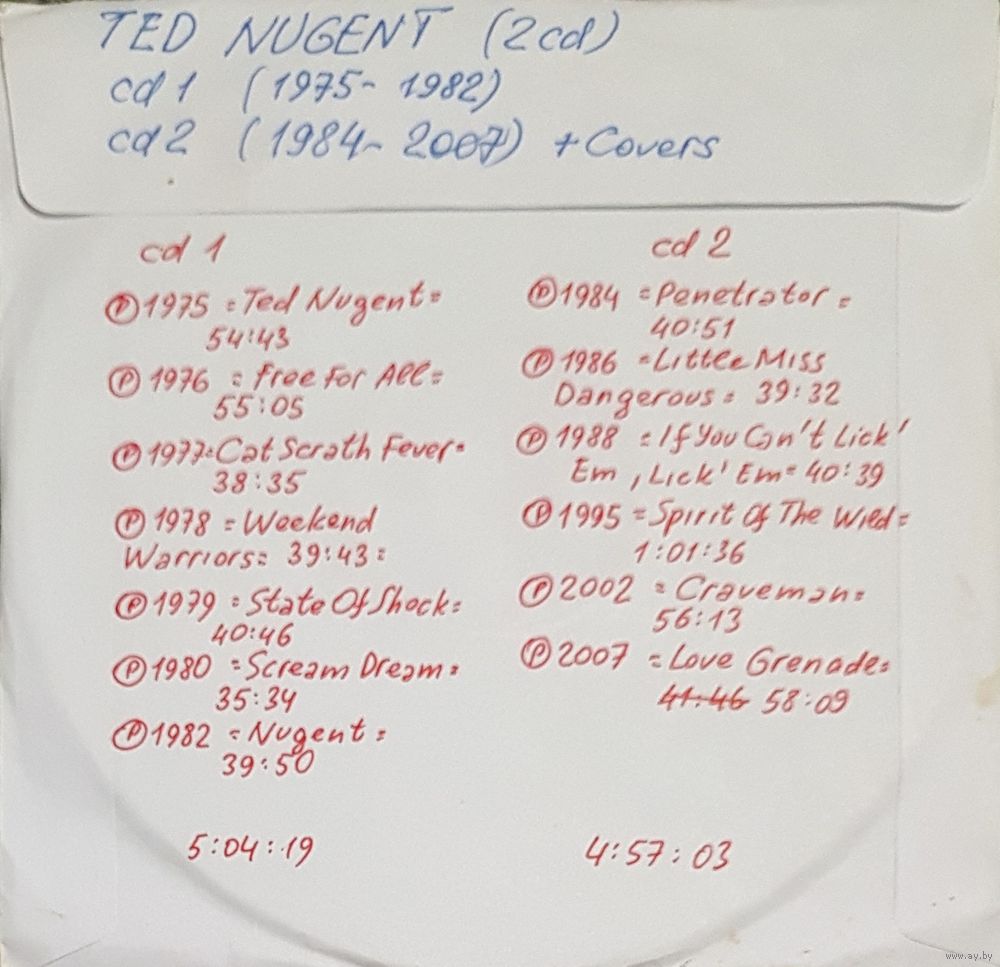 TED NUGENT (2cd)
cd 1 (1975- 1982)
cd 2 (1984- 2007) + Covers
cd 1
Ⓟ 1975 =Ted Nugent=
54:43
Ⓟ 1976 =Free For All=
55:05
Ⓟ 1977=Cat Scrath Fever=
38:35
Ⓟ 1978 =Weekend
Warriors= 39:43=
Ⓟ 1979 =State Of Shock=
40:46
Ⓟ 1980 =Scream Dream=
35:34
Ⓟ 1982 =Nugent=
39:50
5:04:19
cd 2
Ⓟ 1984 =Penetrator=
40:51
Ⓟ 1986 =Little Miss
Dangerous= 39:32
Ⓟ 1988 =If You Can't Lick'
Em, Lick' Em= 40:39
Ⓟ 1995 =Spirit Of The Wild=
1:01:36
Ⓟ 2002 =Craveman=
56:13
Ⓟ 2007 =Love Grenade=
41:46 58:09
4:57:03
www.ay.by